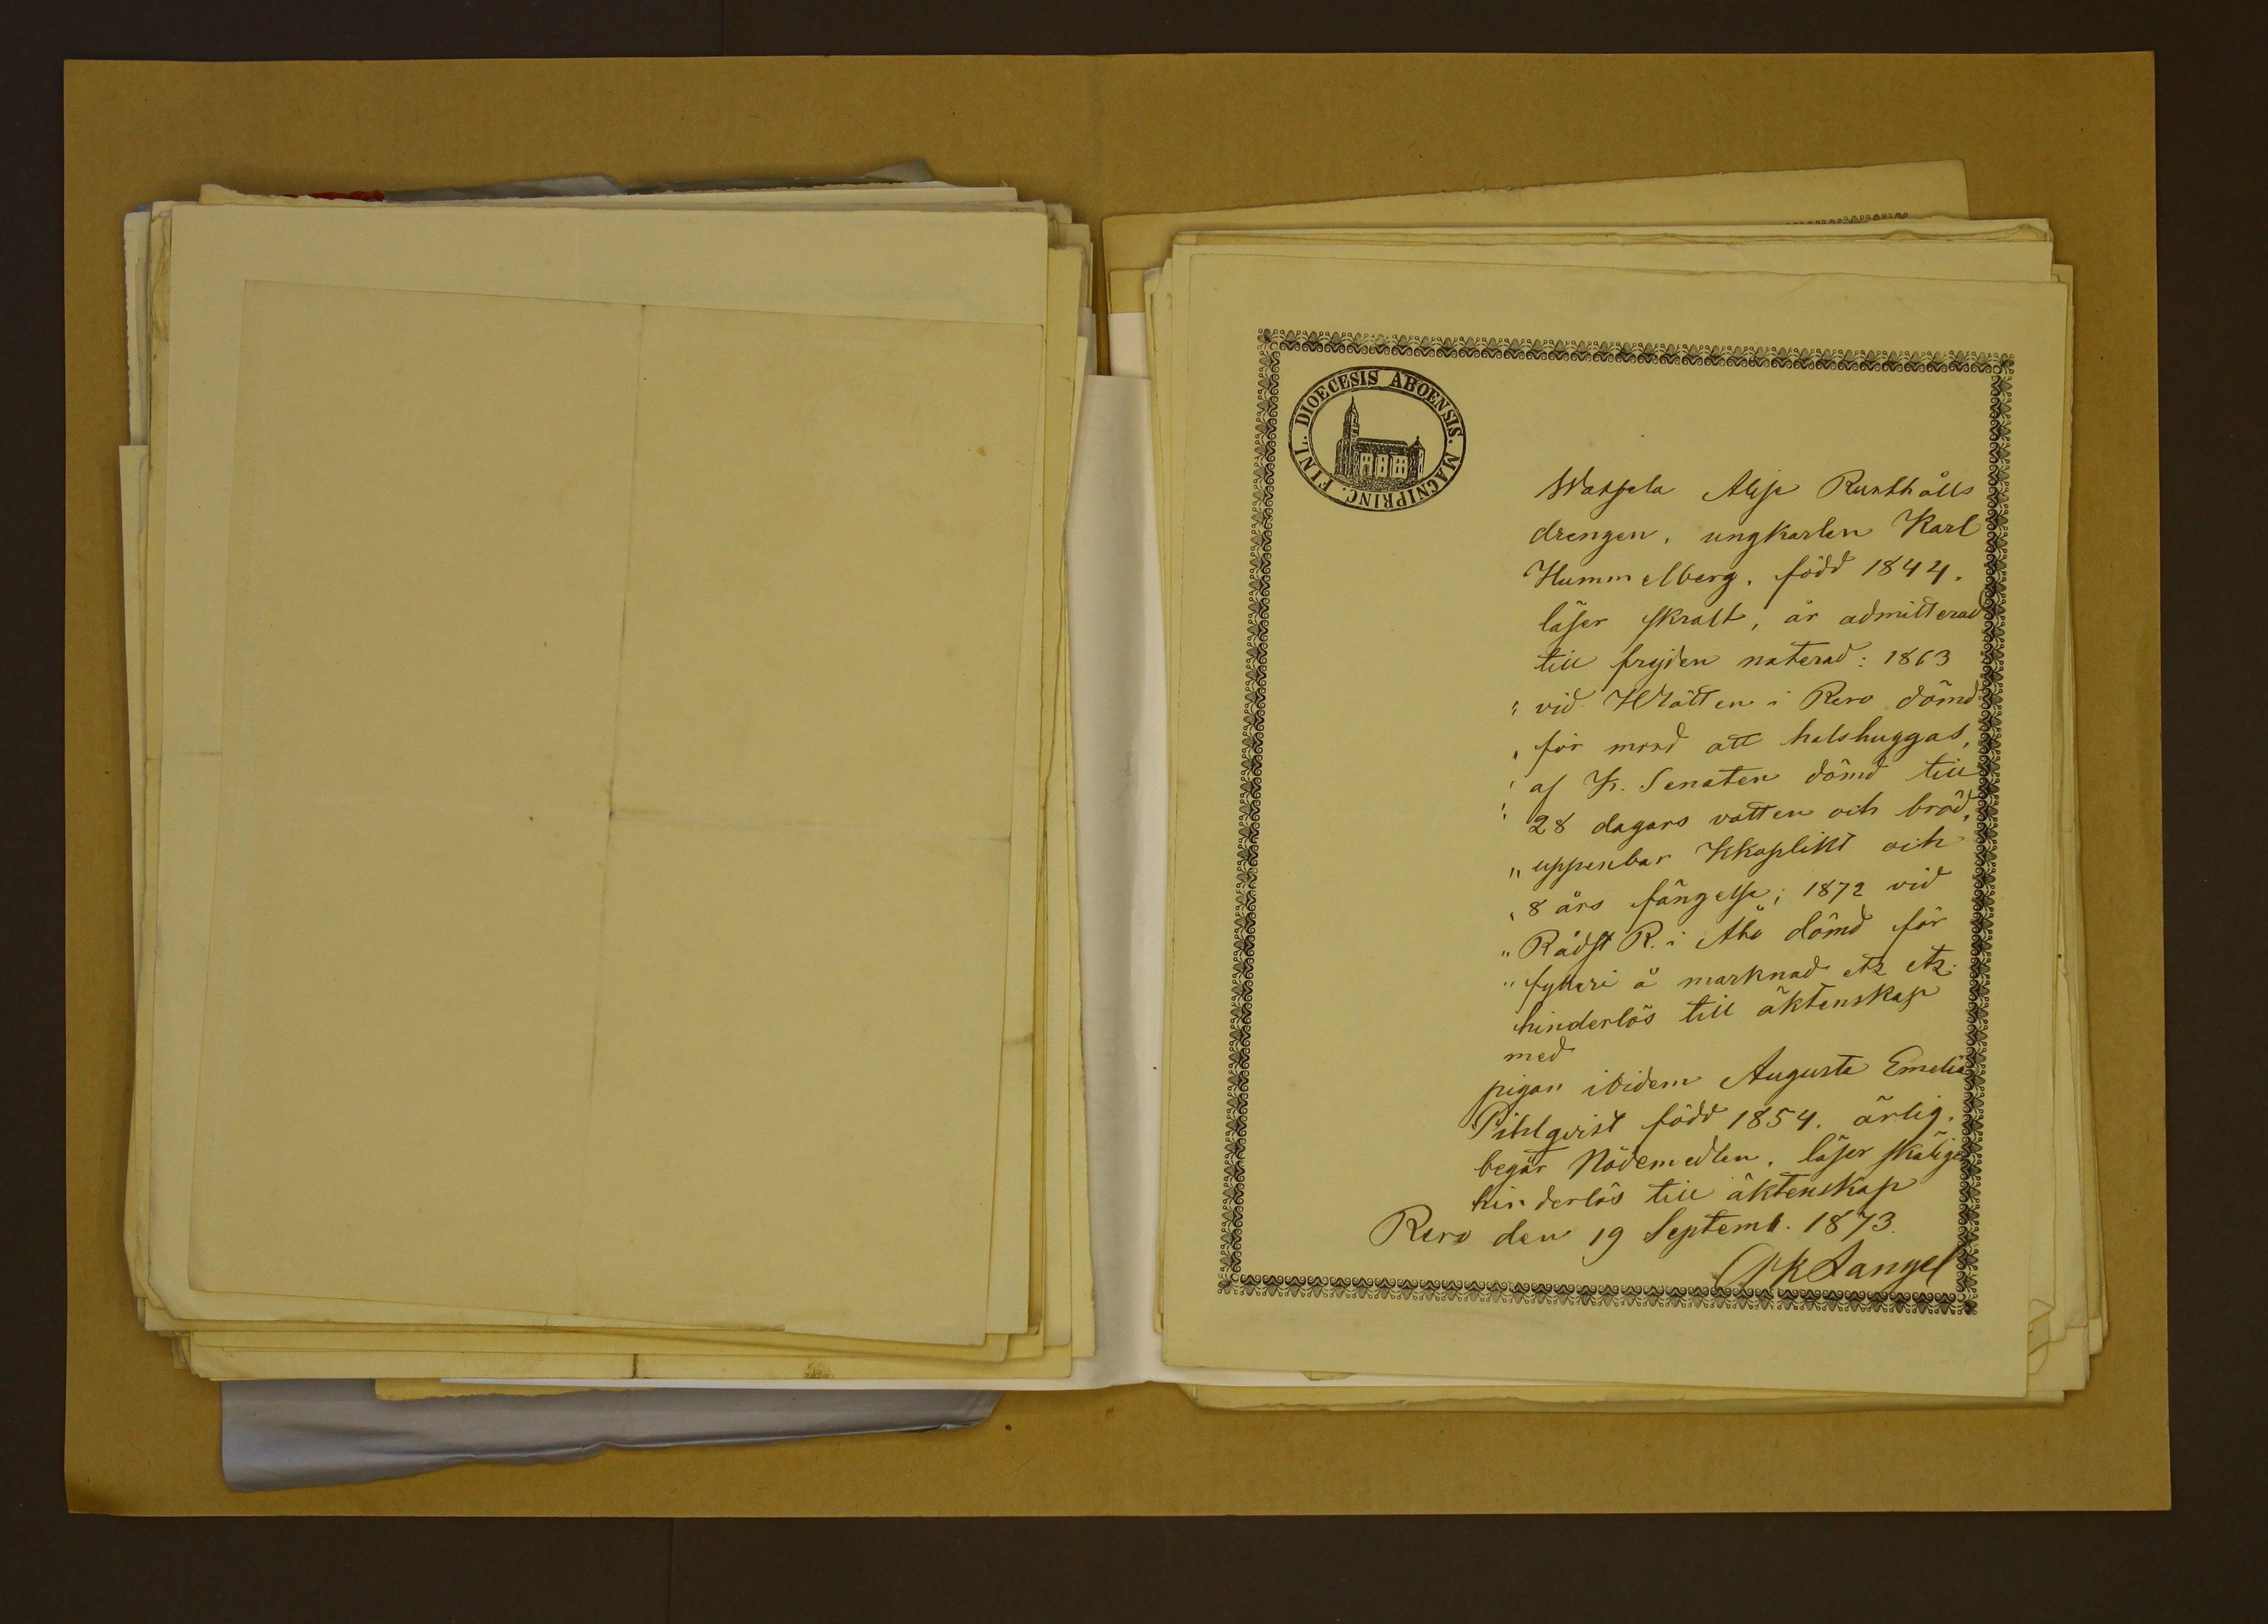 DIOECESIS ABOENSIS. MAGNIPRINC. FINL.
Alsje Rusthålls
drengen, ungkarlen Karl
Hummelberg, född 1844.
läser skralt, är admitterad
till frejden noterad: 1863
" vid HRätten i Rero dömd
" för mord att halshuggas,
" af K. Senaten dömd till
" 28 dagars vatten och bröd,
" uppenbar Kkoplikt och
" 8 års fängelse; 1872 vid
" RådstR. i Åbo dömd för
" fylleri å marknad etz etz.
hinderlös till äktenskap
med
pigan ibidem Augusta Emelia
Pihlqvist född 1854. ärlig.
begär Nådemedlen, läser skäligen
hinderlös till äktenskap
Rero den 19 Septemb. 1873.